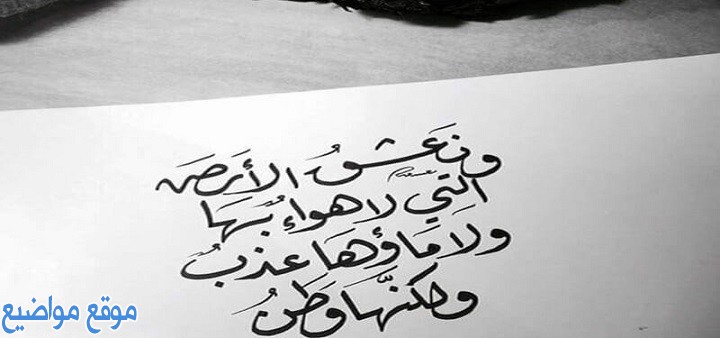 ونَعشقُ الأَرضَ
التِي لا هواءُ بهَا
ولا مَاؤهَا عذبُ
ولكنَّها وَطنُ
موقع مواضيع